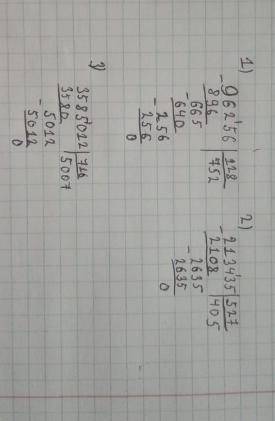 1)
- 96256 | 128
896 | 752
- 665
640
- 256
256
0
2)
- 213435 | 527
2108 | 405
- 2635
2635
0
3)
3585012 | 716
3580 | 5007
- 5012
5012
0